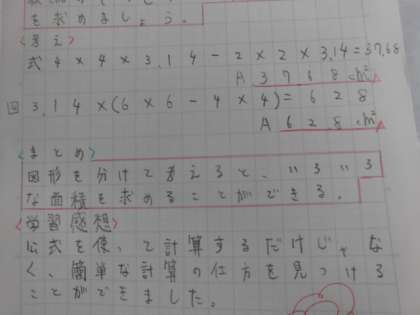 を求めましょう。
<考え>
式 4×4×3.14-2×2×3.14=37.68
A 37.68cm²
回 3.14×(6×6-4×4)=62.8
A 62.8cm²
<まとめ>
図形を分けて考えると、いろいろ
な面積を求めることができる。
<学習感想>
公式を使って計算するだけじゃな
く、簡単な計算の仕方を見つける
ことができました。